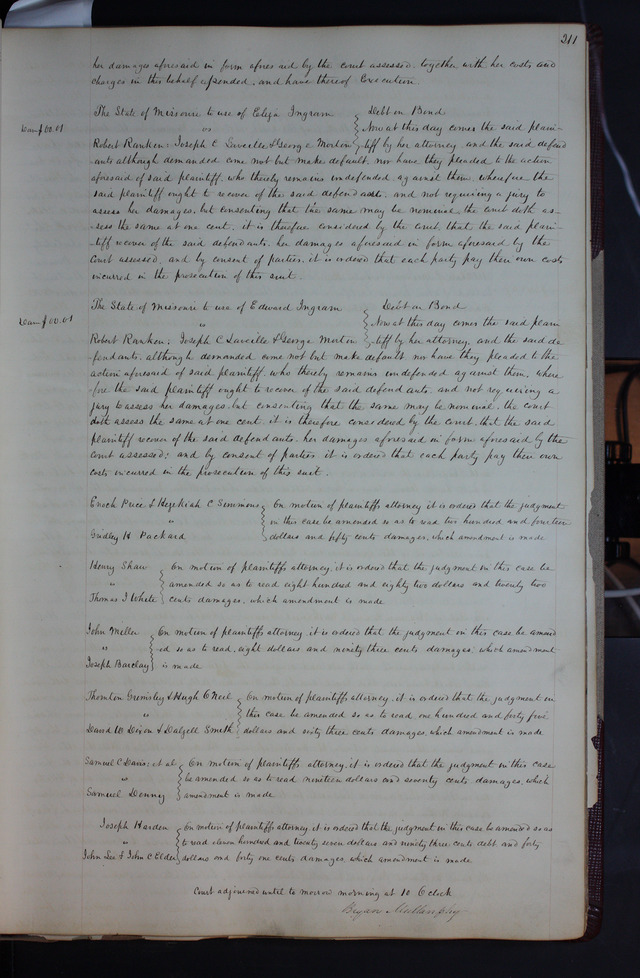 211
her damages aforesaid in form aforesaid by the court assessed, together with her costs and
charges in this behalf expended, and have thereof Execution
The State of Missouri to use of Eliza Ingram } Debt on Bond
Dam $00.01
vs } Now at this day comes the said plain-
Robert Ranken; Joseph C Laveille & George Morton } tiff by her attorney and the said defend
ants although demanded come not but make default, nor have they pleaded to the action
aforesaid of said plaintiff, who thereby remains undefended against them, wherefore the
said plaintiff ought to recover of the said defendants. and not requiring a jury to
assess her damages, but consenting that the same may be nominal, the court doth as-
sess the same at one cent. it is therefore considered by the court, that the said plain-
tiff recover of the said defendants, her damages aforesaid in form aforesaid by the
Court assessed, and by consent of parties, it is ordered that each party pay their own costs
incurred in the prosecution of this suit.
The State of Missouri to use of Edward Ingram } Debt on Bond
Dam $00.01
" } Now at this day comes the said plain
Robert Ranken; Joseph C Laveille & George Morton } tiff by her attorney, and the said de
fendants, although demanded come not but make default nor have they pleaded to the
action aforesaid of said plaintiff, who thereby remains undefended against them, where
-fore the said plaintiff ought to recover of the said defendants, and not requiring a
jury to assess her damages but consenting that the same may be nominal, the court
doth assess the same at one cent, it is therefore considered by the court, that the said
plaintiff recover of the said defendants, her damages aforesaid in form aforesaid by the
court assessed; and by consent of parties it is ordered that each party pay their own
costs incurred in the prosecution of this suit.
Enoch Price & Hezekiah C Simmons } On motion of plaintiffs attorney it is ordered that the judgment
" } in this case be amended so as to read two hundred and fourteen
Gridley H Packard } dollars and fifty cents damages, which amendment is made
Henry Shaw } On motion of plaintiffs attorney, it is ordered that the judgment in this case be
" } amended so as to read eight hundred and eighty two dollars and twenty two
Thomas J White } cents damages, which amendment is made
John Miller } On motion of plaintiffs attorney, it is ordered that the judgment in this case be amend
" } ed so as to read, eight dollars and ninety three cents damages, which amendment
Joseph Barclay } is made
Thornton Grimsley & Hugh O'Neil } On motion of plaintiffs attorney, it is ordered that the judgment in
" } this case be amended so as to read one hundred and forty five
David W Dixon & Dalzell Smith } dollars and sixty three cents damages, which amendment is made
Samuel C Davis; et al } On motion of plaintiffs attorney, it is ordered that the judgment in this case
" } be amended so as to read nineteen dollars and seventy cents damages, which
Samuel Denny } amendment is made
Joseph Harden } On motion of plaintiffs attorney, it is ordered that the judgment in this case be amended so as
" } to read eleven hundred and twenty seven dollars and ninety three cents debt and forty
John Lee & John C Elder } dollars and forty one cents damages, which amendment is made
Court adjourned until to morrow morning at 10 O'clock
Bryan Mullanphy